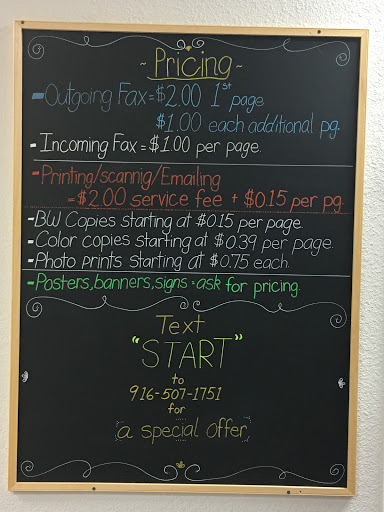 ~ Pricing ~
- Outgoing Fax = $2.00 1st page
$1.00 each additional pg.
- Incoming Fax = $1.00 per page.
- Printing/scannig/Emailing
= $2.00 service fee + $0.15 per pg.
- BW Copies starting at $0.15 per page.
- Color copies starting at $0.39 per page.
- Photo prints starting at $0.75 each.
- Posters, banners, signs = ask for pricing.
Text
"START"
to
916-507-1751
for
a special offer